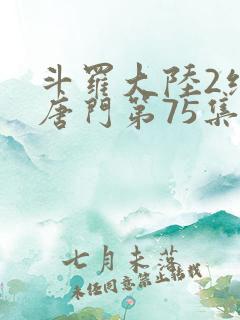 斗羅大陸2纟
唐門第75集
七月未落
未经同意禁止转载